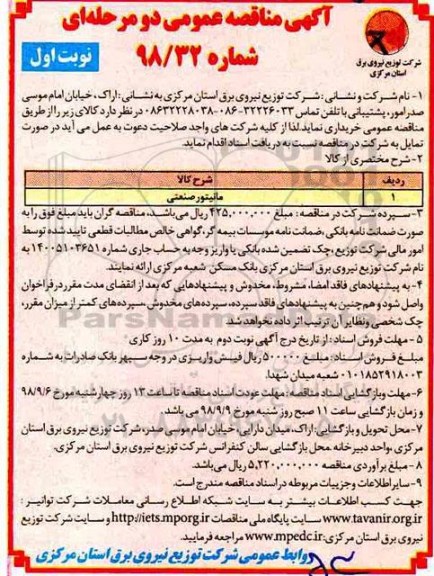 آگهی مناقصه عمومی دو مرحله‌ای
شماره ۹۸/۳۲
نوبت اول
شرکت توزیع نیروی برق
استان مرکزی
۱- نام شرکت و نشانی: شرکت توزیع نیروی برق استان مرکزی به نشانی: اراک، خیابان امام موسی
صدر امور، پشتیبانی با تلفن تماس ۳۲۲۲۶۰۳۳-۰۸۶ ۰۸۶۳۲۲۲۸۰۳۸ در نظر دارد کالای زیر را از طریق
مناقصه عمومی خریداری نماید. لذا از کلیه شرکت های واجد صلاحیت دعوت به عمل می آید در صورت
تمایل به شرکت در مناقصه نسبت به دریافت اسناد اقدام نماید.
۲- شرح مختصری از کالا
ردیف شرح کالا
۱ مانیتور صنعتی
۳- سپرده شرکت در مناقصه: مبلغ ۴۲۵,۰۰۰,۰۰۰ ریال می‌باشد، مناقصه گران باید مبلغ فوق را به
صورت ضمانت نامه بانکی، ضمانت نامه موسسات بیمه گر، گواهی خالص مطالبات قطعی تایید شده توسط
امور مالی شرکت توزیع، چک تضمین شده بانکی یا واریز وجه به حساب جاری شماره ۱۴۰۰۵۱۰۳۶۵۱ به
نام شرکت توزیع نیروی برق استان مرکزی بانک مسکن شعبه مرکزی ارائه نمایند.
۴- به پیشنهادهای فاقد امضا، مشروط، مخدوش و پیشنهادهایی که بعد از انقضای مدت مقرر در فراخوان
واصل شود و هم‌چنین به پیشنهادهای فاقد سپرده، سپرده‌های مخدوش، سپرده‌های کمتر از میزان مقرر،
چک شخصی و نظایر آن ترتیب اثر داده نخواهد شد.
۵- مهلت فروش اسناد: از تاریخ درج آگهی نوبت دوم به مدت ۱۰ روز کاری
مبلغ فروش اسناد: مبلغ ۵۰۰۰۰۰ ریال فیش واریزی در وجه سپهر بانک صادرات به شماره
۰۱۰۱۸۵۲۹۱۸۰۰۳ شعبه میدان شهدا.
۶- مهلت و بازگشایی اسناد مناقصه: مهلت عودت اسناد مناقصه تا ساعت ۱۳ روز چهارشنبه مورخ ۹۸/۹/۶
و زمان بازگشایی ساعت ۱۱ صبح روز شنبه مورخ ۹۸/۹/۹ می باشد.
۷- محل تحویل و بازگشایی: اراک، میدان دارایی، خیابان امام موسی صدر، شرکت توزیع نیروی برق استان
مرکزی، واحد دبیرخانه. محل بازگشایی سالن کنفرانس شرکت توزیع نیروی برق استان مرکزی.
۸- مبلغ برآوردی مناقصه ۵,۲۲۰,۰۰۰,۰۰۰ ریال می‌باشد.
۹- سایر اطلاعات و جزییات مربوطه در اسناد مناقصه مندرج است.
جهت کسب اطلاعات بیشتر به سایت شبکه اطلاع رسانی معاملات شرکت توانیر:
www.tavanir.org.ir سایت پایگاه ملی مناقصات http://iets.mporg.ir و سایت شرکت توزیع
نیروی برق استان مرکزی: www.mpedc.ir مراجعه فرمایید.
روابط عمومی شرکت توزیع نیروی برق استان مرکزی